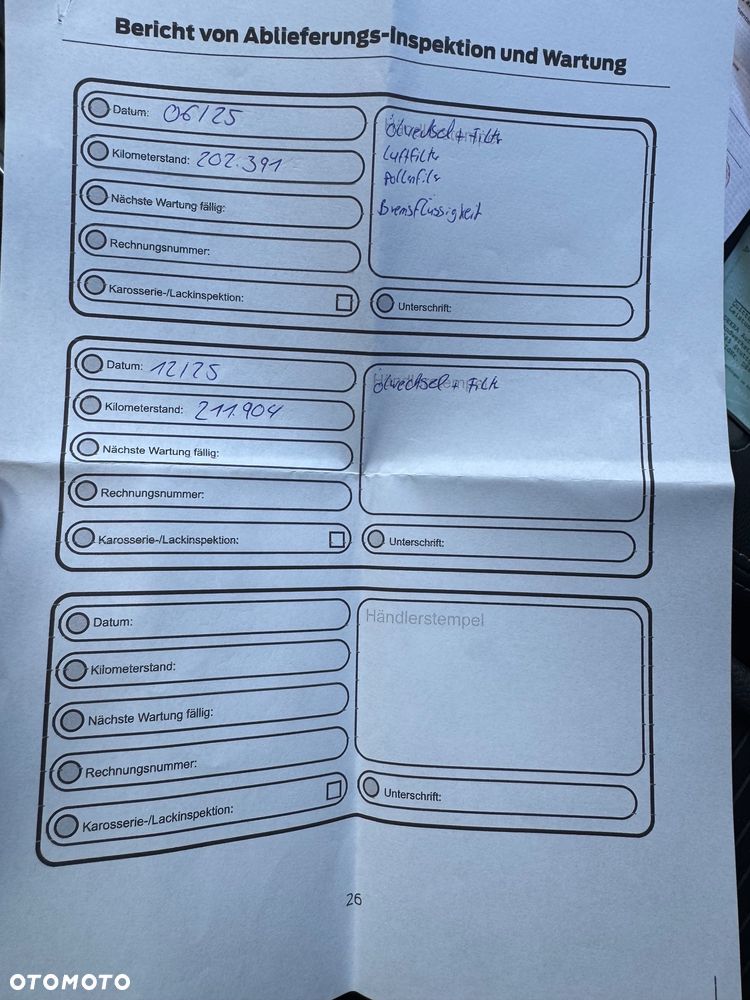 Bericht von Ablieferungs-Inspektion und Wartung
Datum: 06/25
Kilometerstand: 202.391
Nächste Wartung fällig:
Rechnungsnummer:
Karosserie-/Lackinspektion:
Ölwechsel + Filter
Luftfilter
Pollenfilter
Bremsflüssigkeit
Unterschrift:
Datum: 12/25
Kilometerstand: 211.904
Nächste Wartung fällig:
Rechnungsnummer:
Karosserie-/Lackinspektion:
Ölwechsel + Filter
Unterschrift:
Datum:
Kilometerstand:
Nächste Wartung fällig:
Rechnungsnummer:
Karosserie-/Lackinspektion:
Händlerstempel
Unterschrift:
26
OTOMOTO